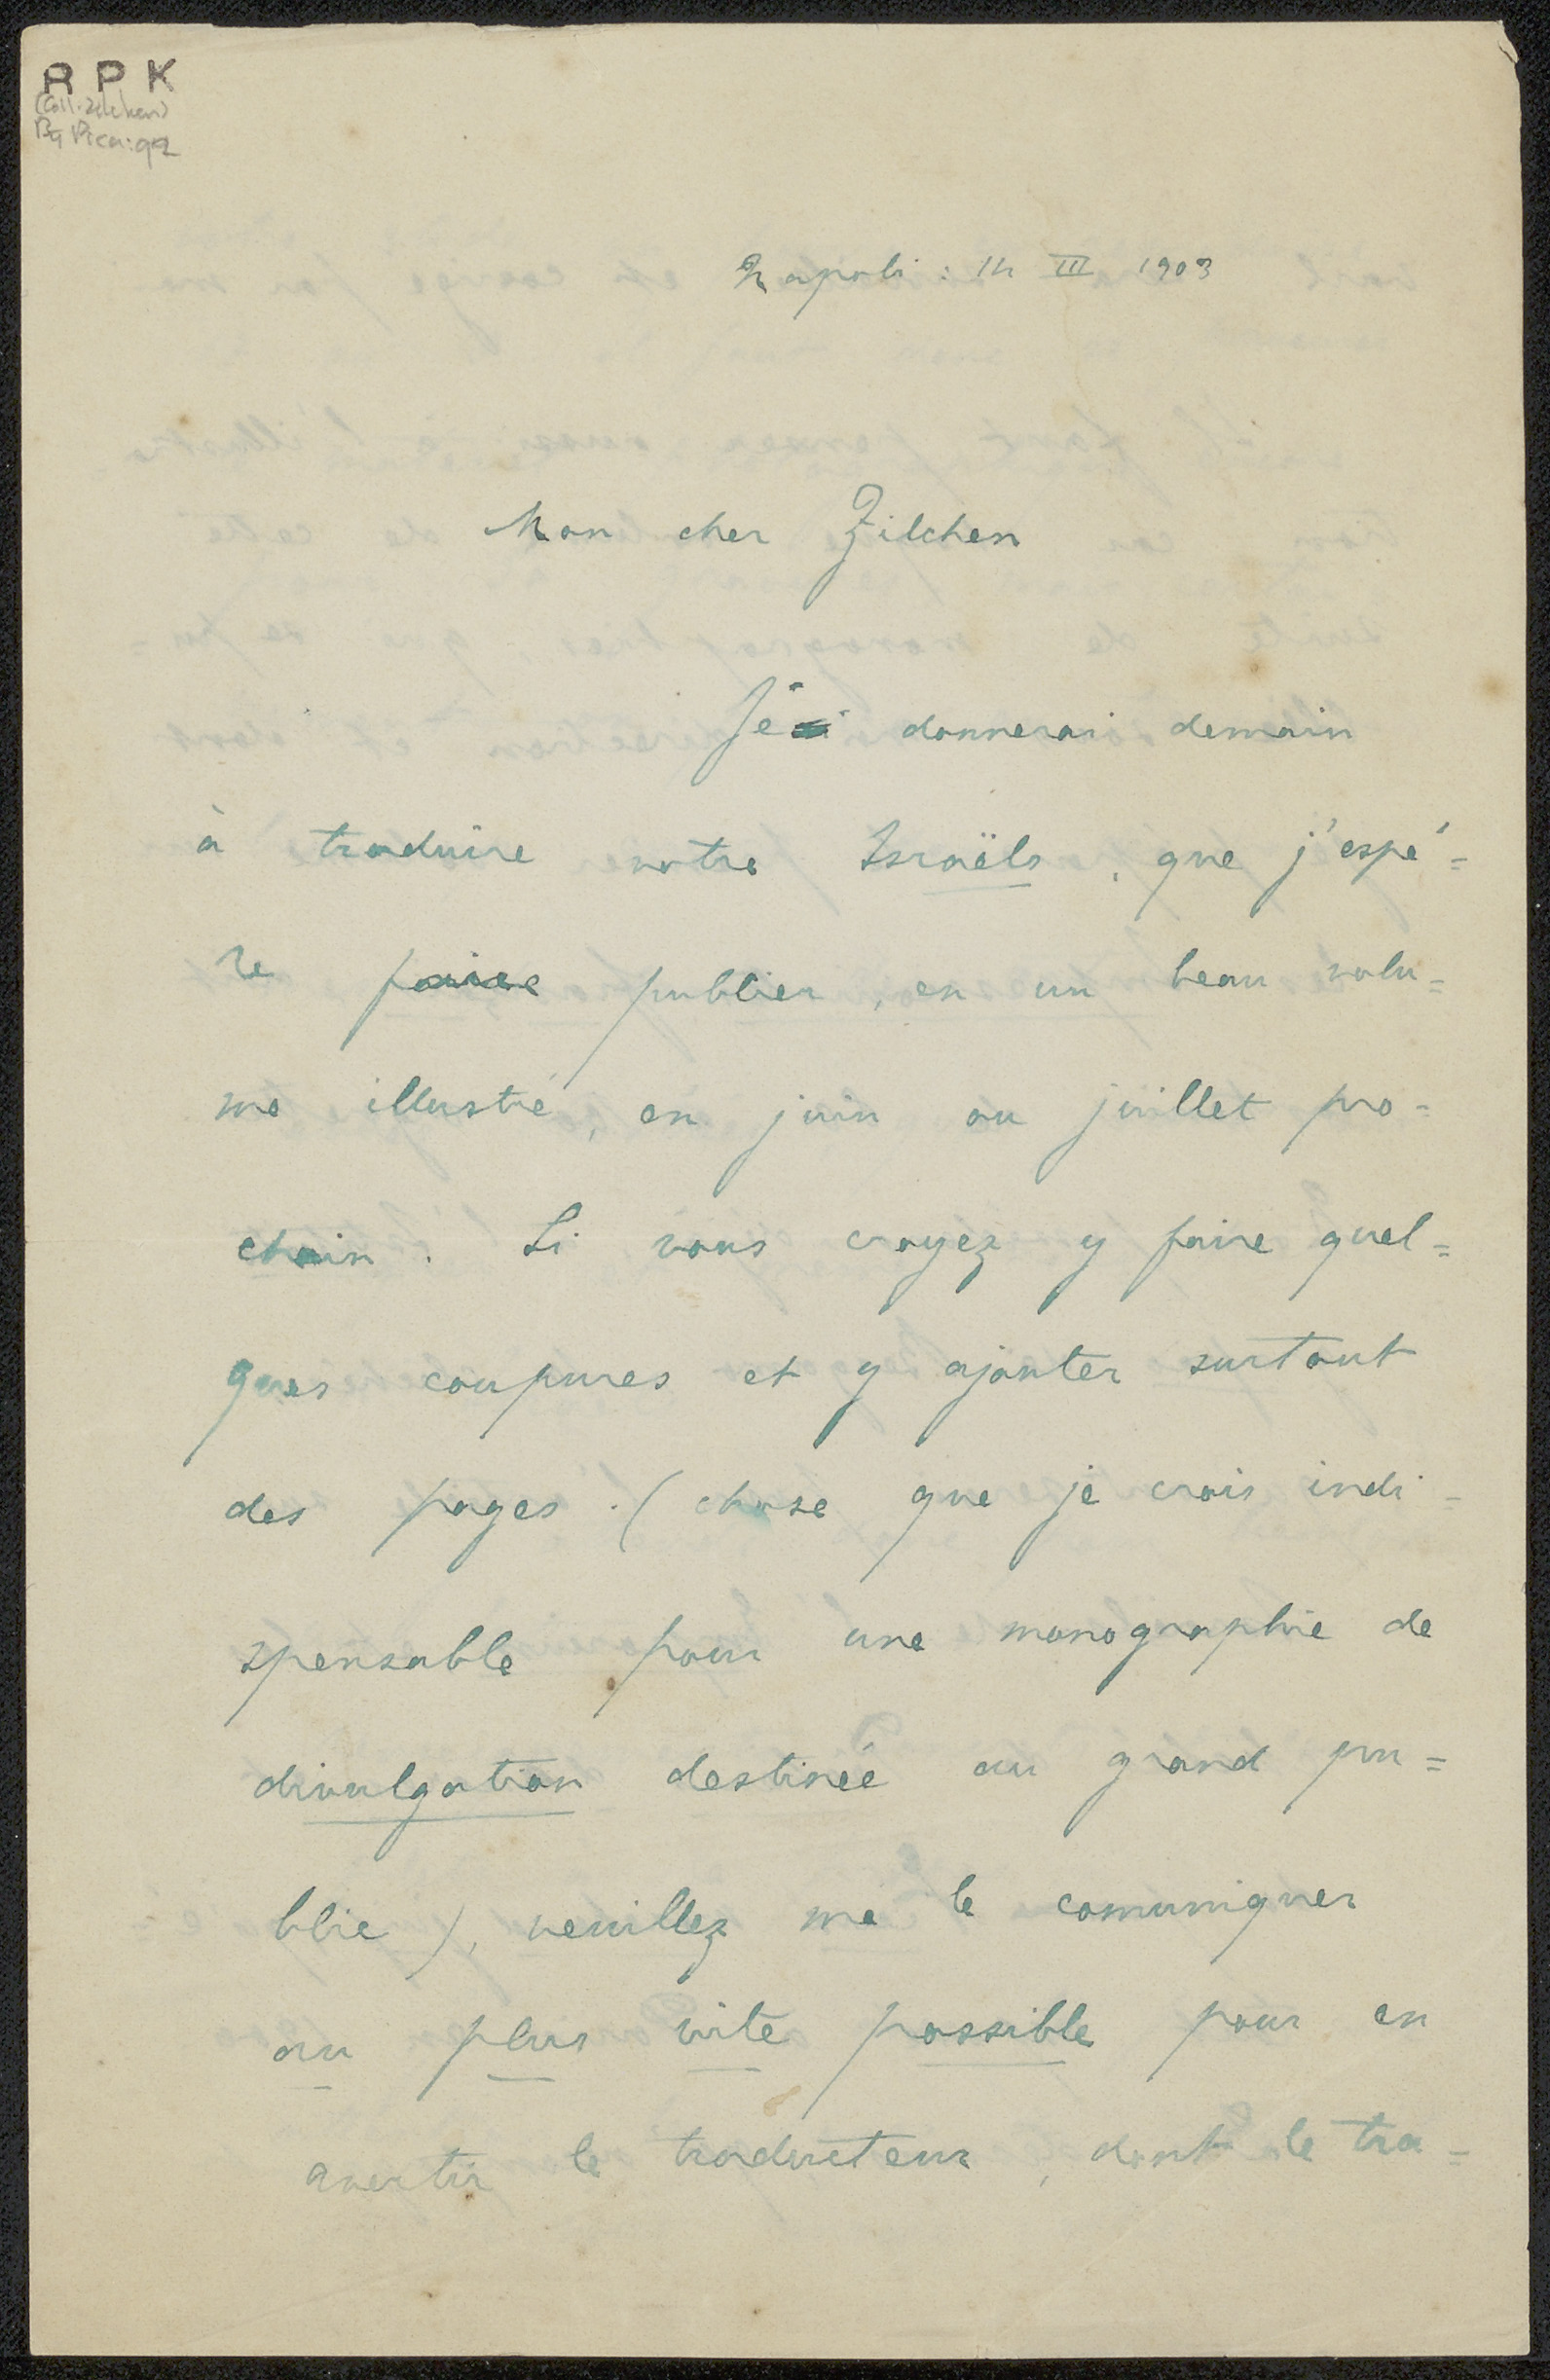 RPK
(Coll. Zilcken)
By Pica: 92
Napoli: 14 III 1903
Mon cher Zilchen
Je donnerai demain
à traduire votre Israëls, que j'espé=
re faire publier, en un beau volu=
me illustré, en juin ou juillet pro=
chain. Si vous croyez y faire quel=
ques coupures et y ajouter surtout
des pages (chose que je crois indi=
spensable pour une monographie de
divulgation destinée au grand pu=
blic), veuillez me le comuniquer
au plus vite possible pour en
avertir le traducteur, dont le tra=